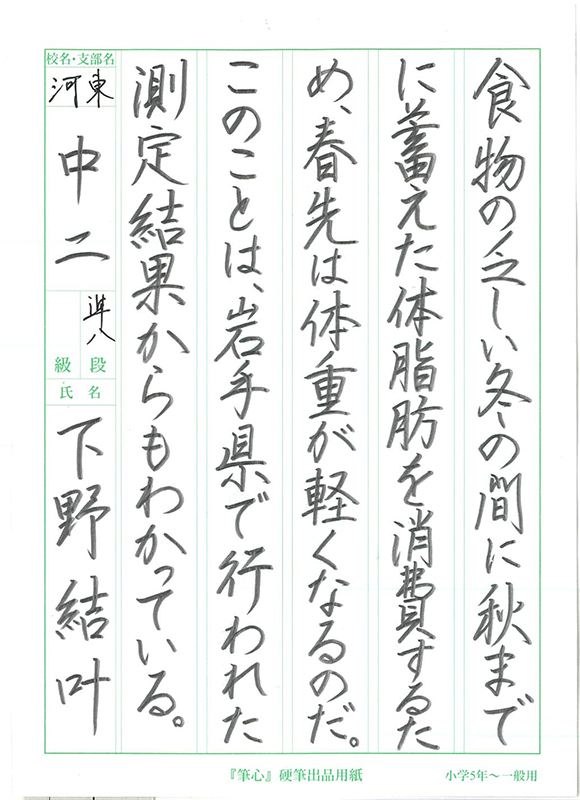 食物の乏しい冬の間に秋まで
に蓄えた体脂肪を消費するた
め、春先は体重が軽くなるのだ。
このことは、岩手県で行われた
測定結果からもわかっている。
校名・支部名
河東
中二
準八
段級
氏名
下野結叶
『筆心』硬筆出品用紙
小学5年～一般用